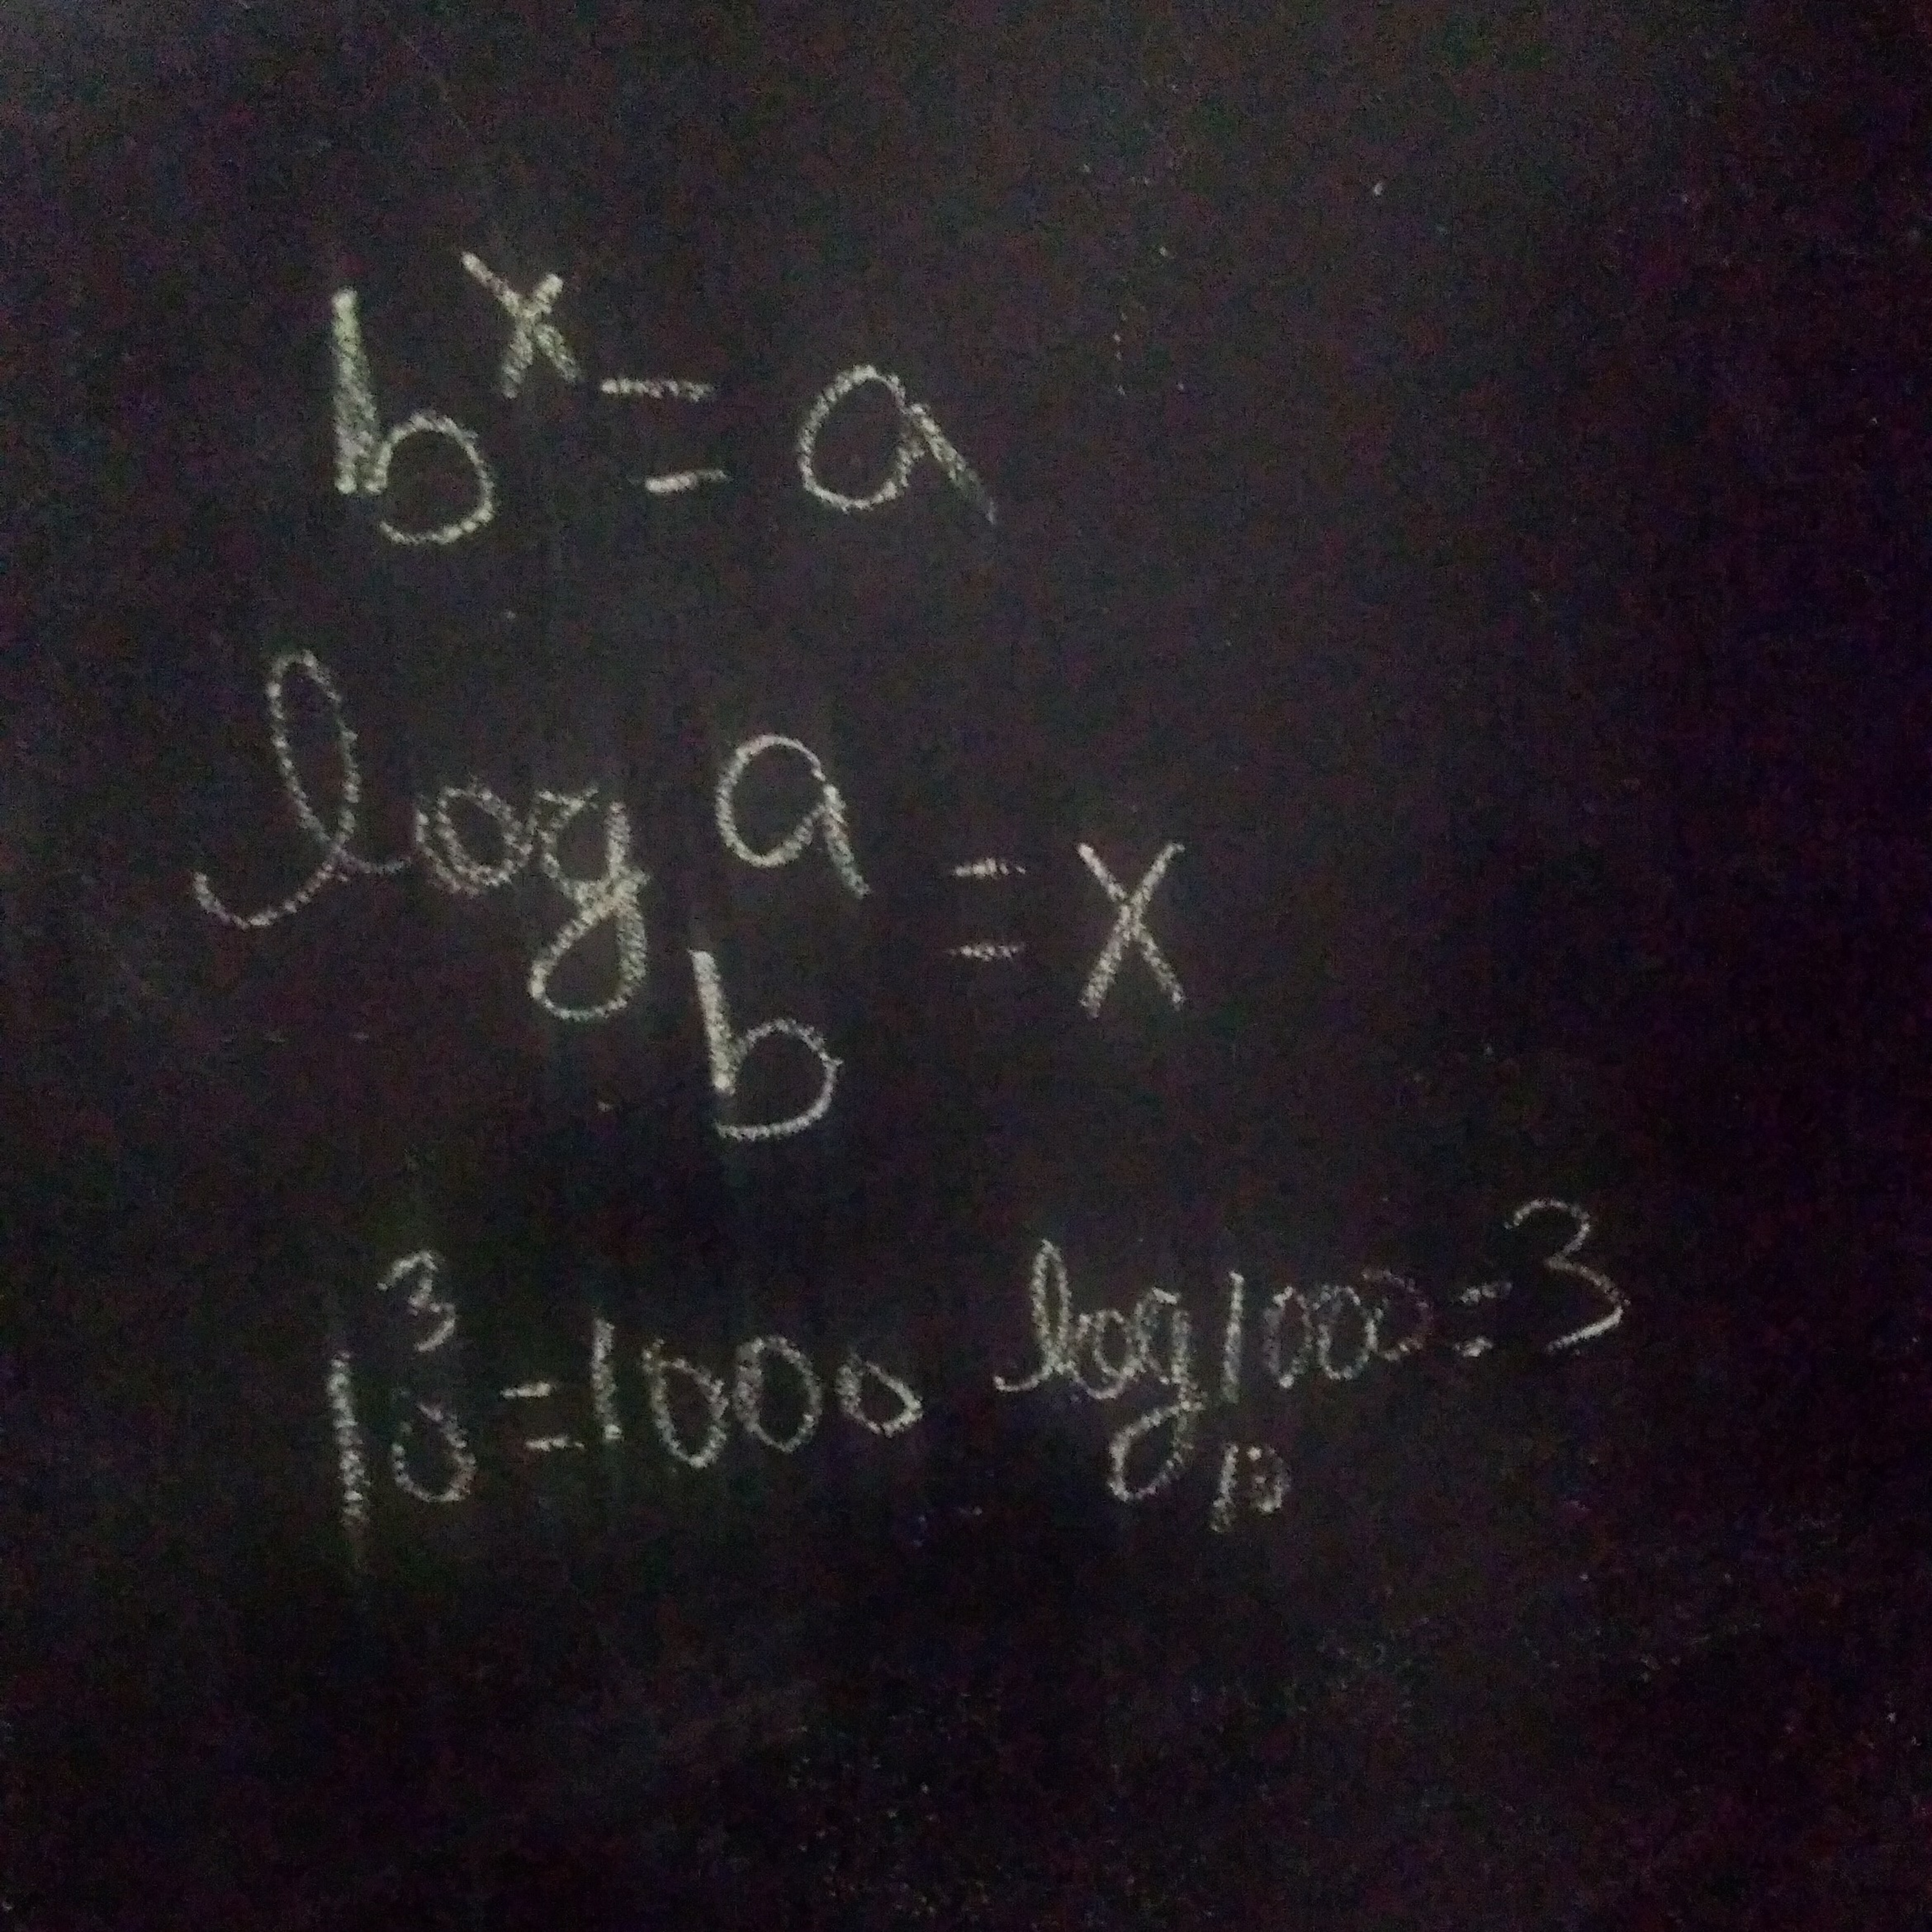 bˣ = a
log_b a = x
10³ = 1000 log₁₀ 1000 = 3